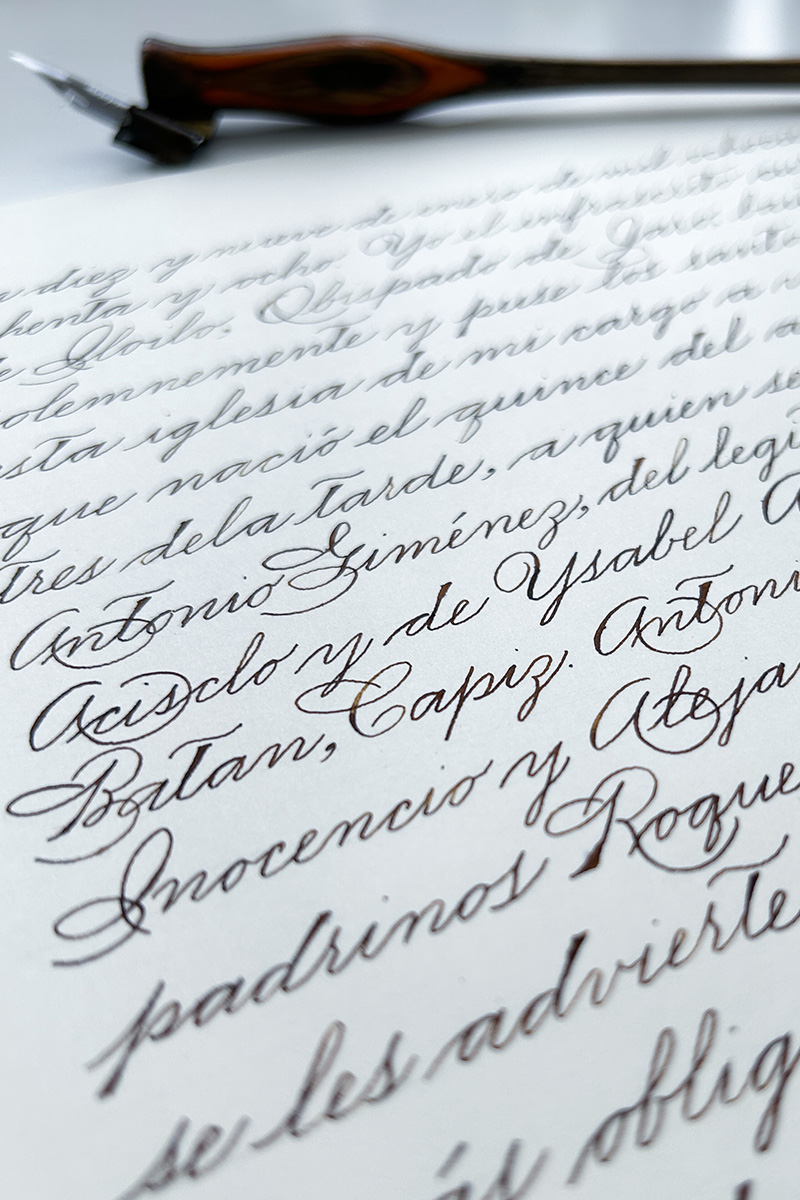 diez y nueve de enero de mil
y ocho. Yo el infrascrito
de Yloilo. Obispado de Jaro.
solemnemente y puse los
esta iglesia de mi cargo a
que nació el quince del
tres dela tarde, a quien
Antonio Giménez, del
Acisclo y de Ysabel
Batan, Capiz.
Inocencio y
padrinos Roque
se les advierte